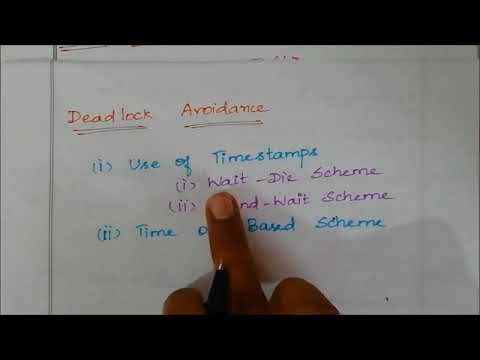 Deadlock Avoidance
(i) Use of Timestamps
(i) Wait-Die Scheme
(ii) nd-Wait Scheme
(ii) Time Based Scheme